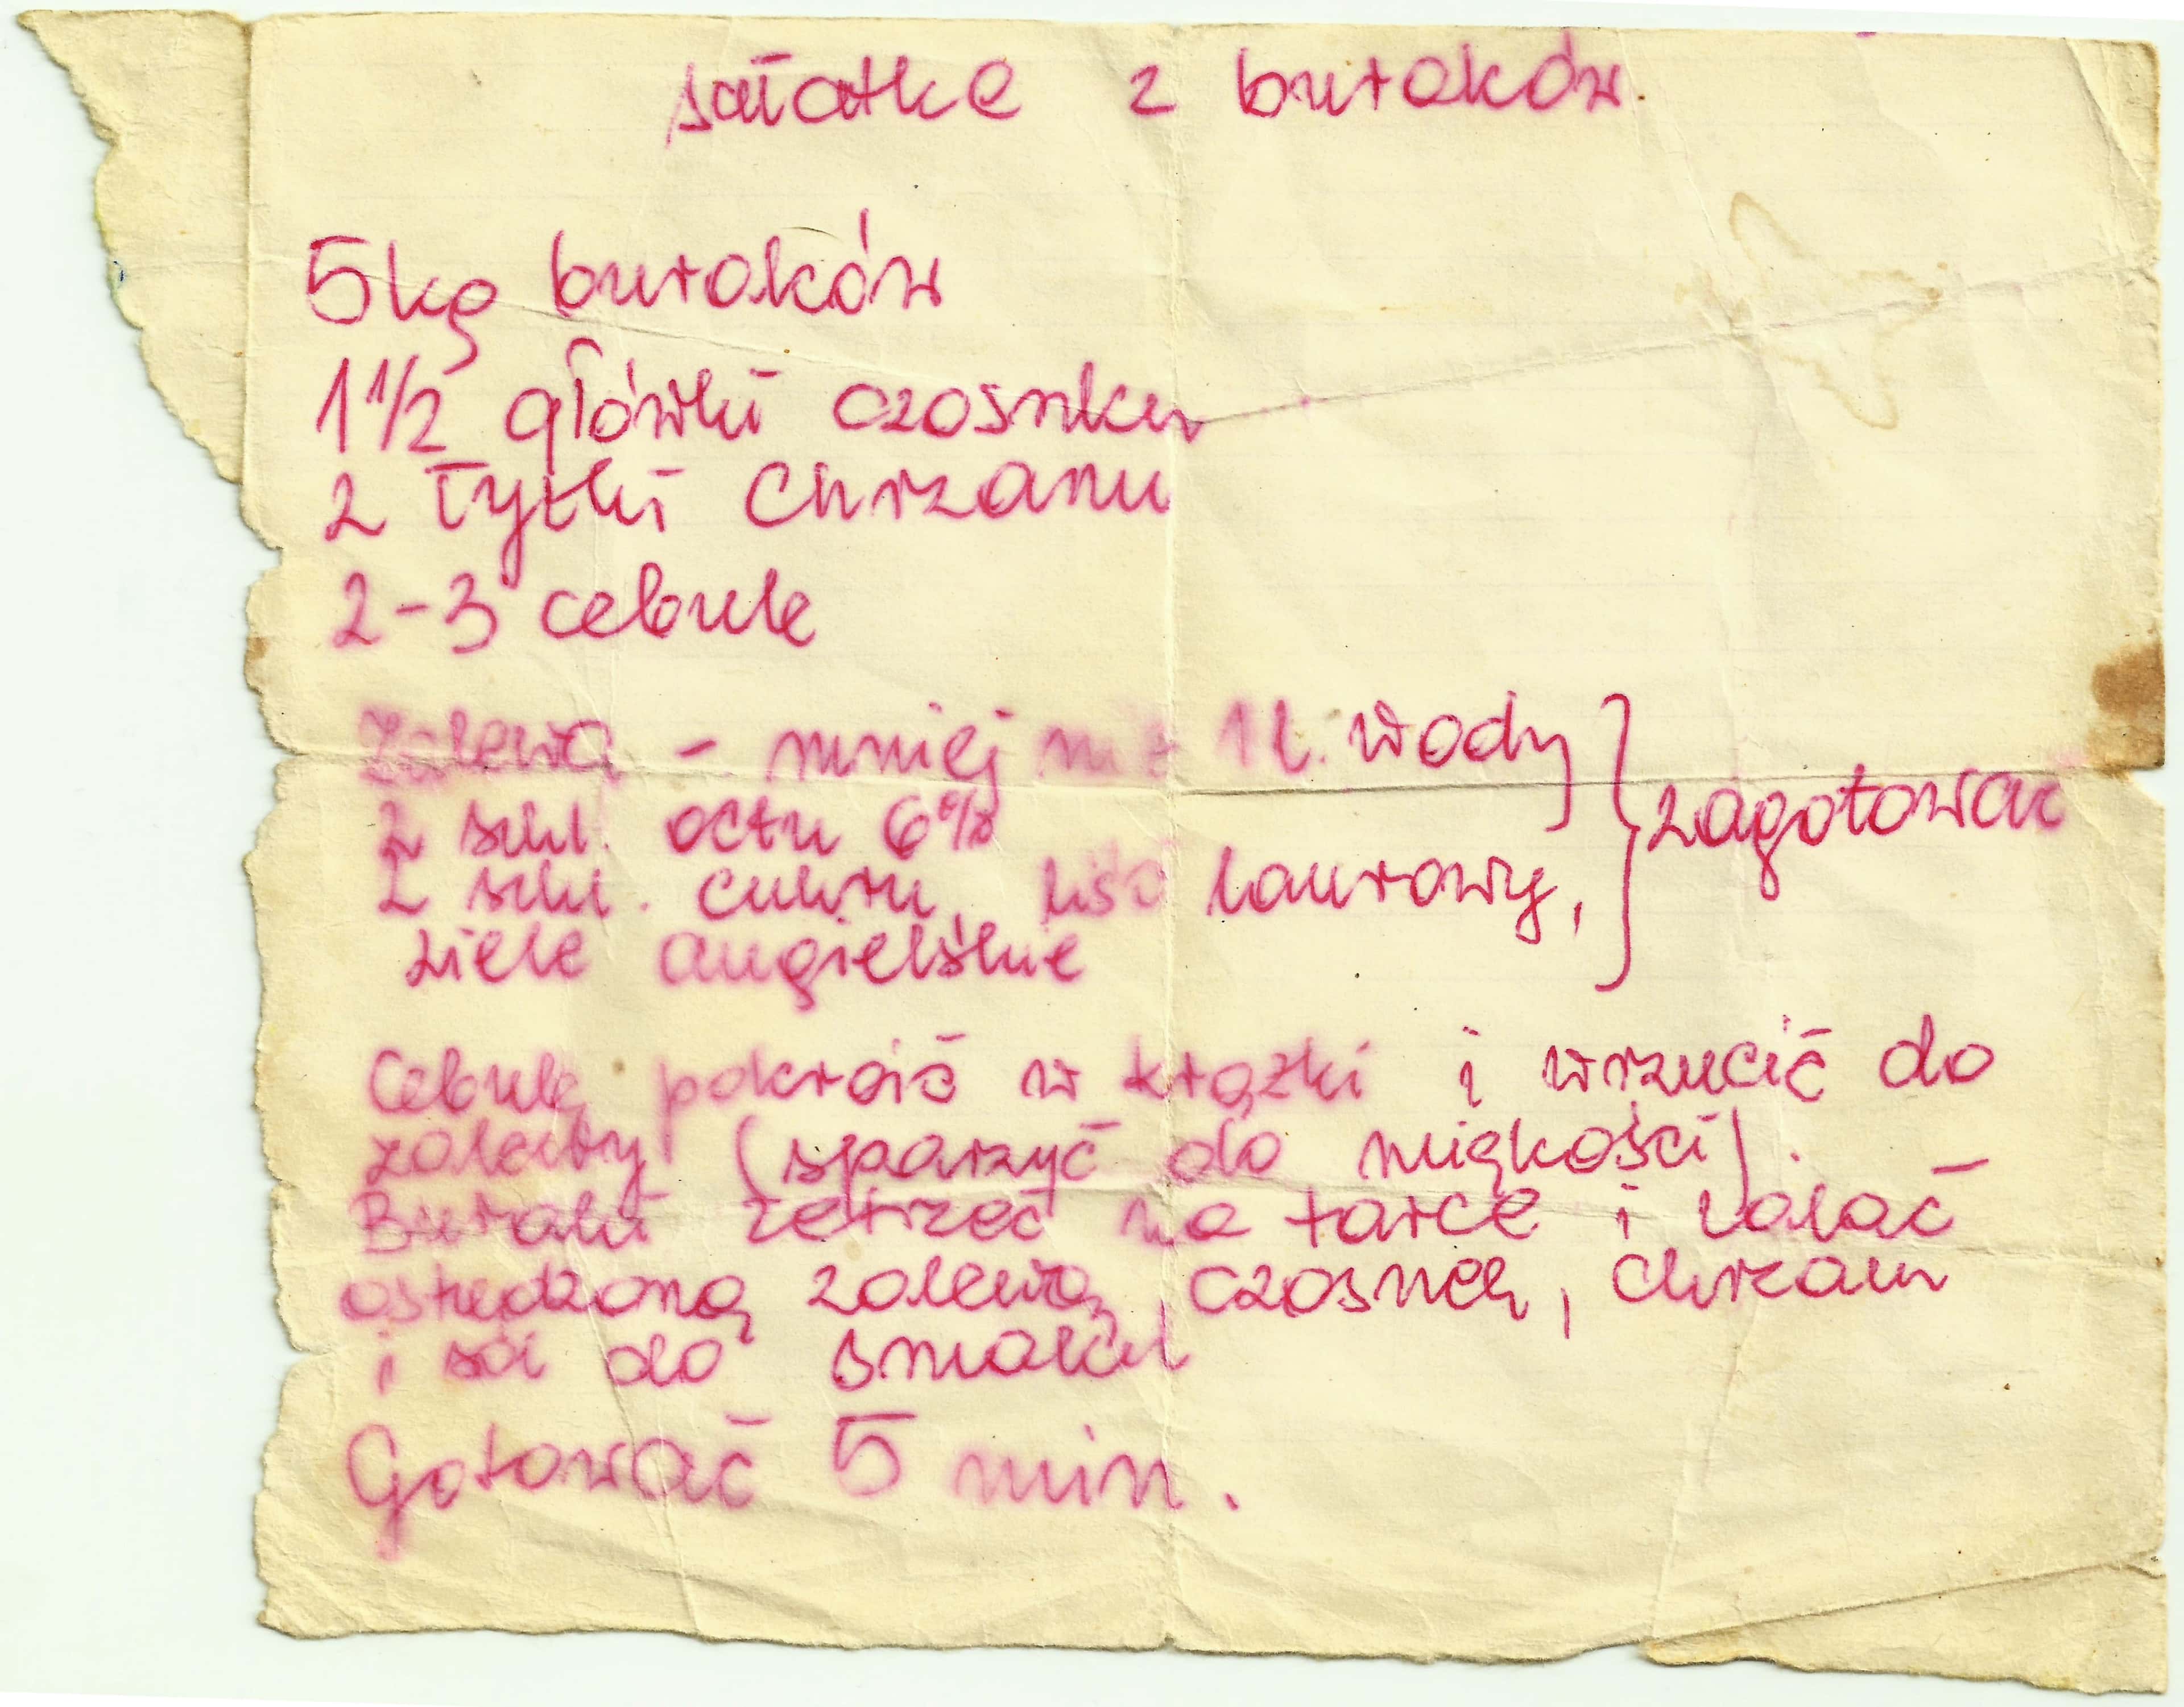 sałatka z buraków
5kg buraków
1 1/2 główki czosnku
2 łyżki chrzanu
2-3 cebule
Zalewa - mniej niż 1 l. wody } zagotować
2 szkl. octu 6%
2 szkl. cukru, liść laurowy,
ziele angielskie
Cebulę pokroić w krążki i wrzucić do
zalewy (sparzyć do miękości).
Buraki zetrzeć na tarce i zalać
ostudzoną zalewą, czosnek, chrzan
i sól do smaku
Gotować 5 min.